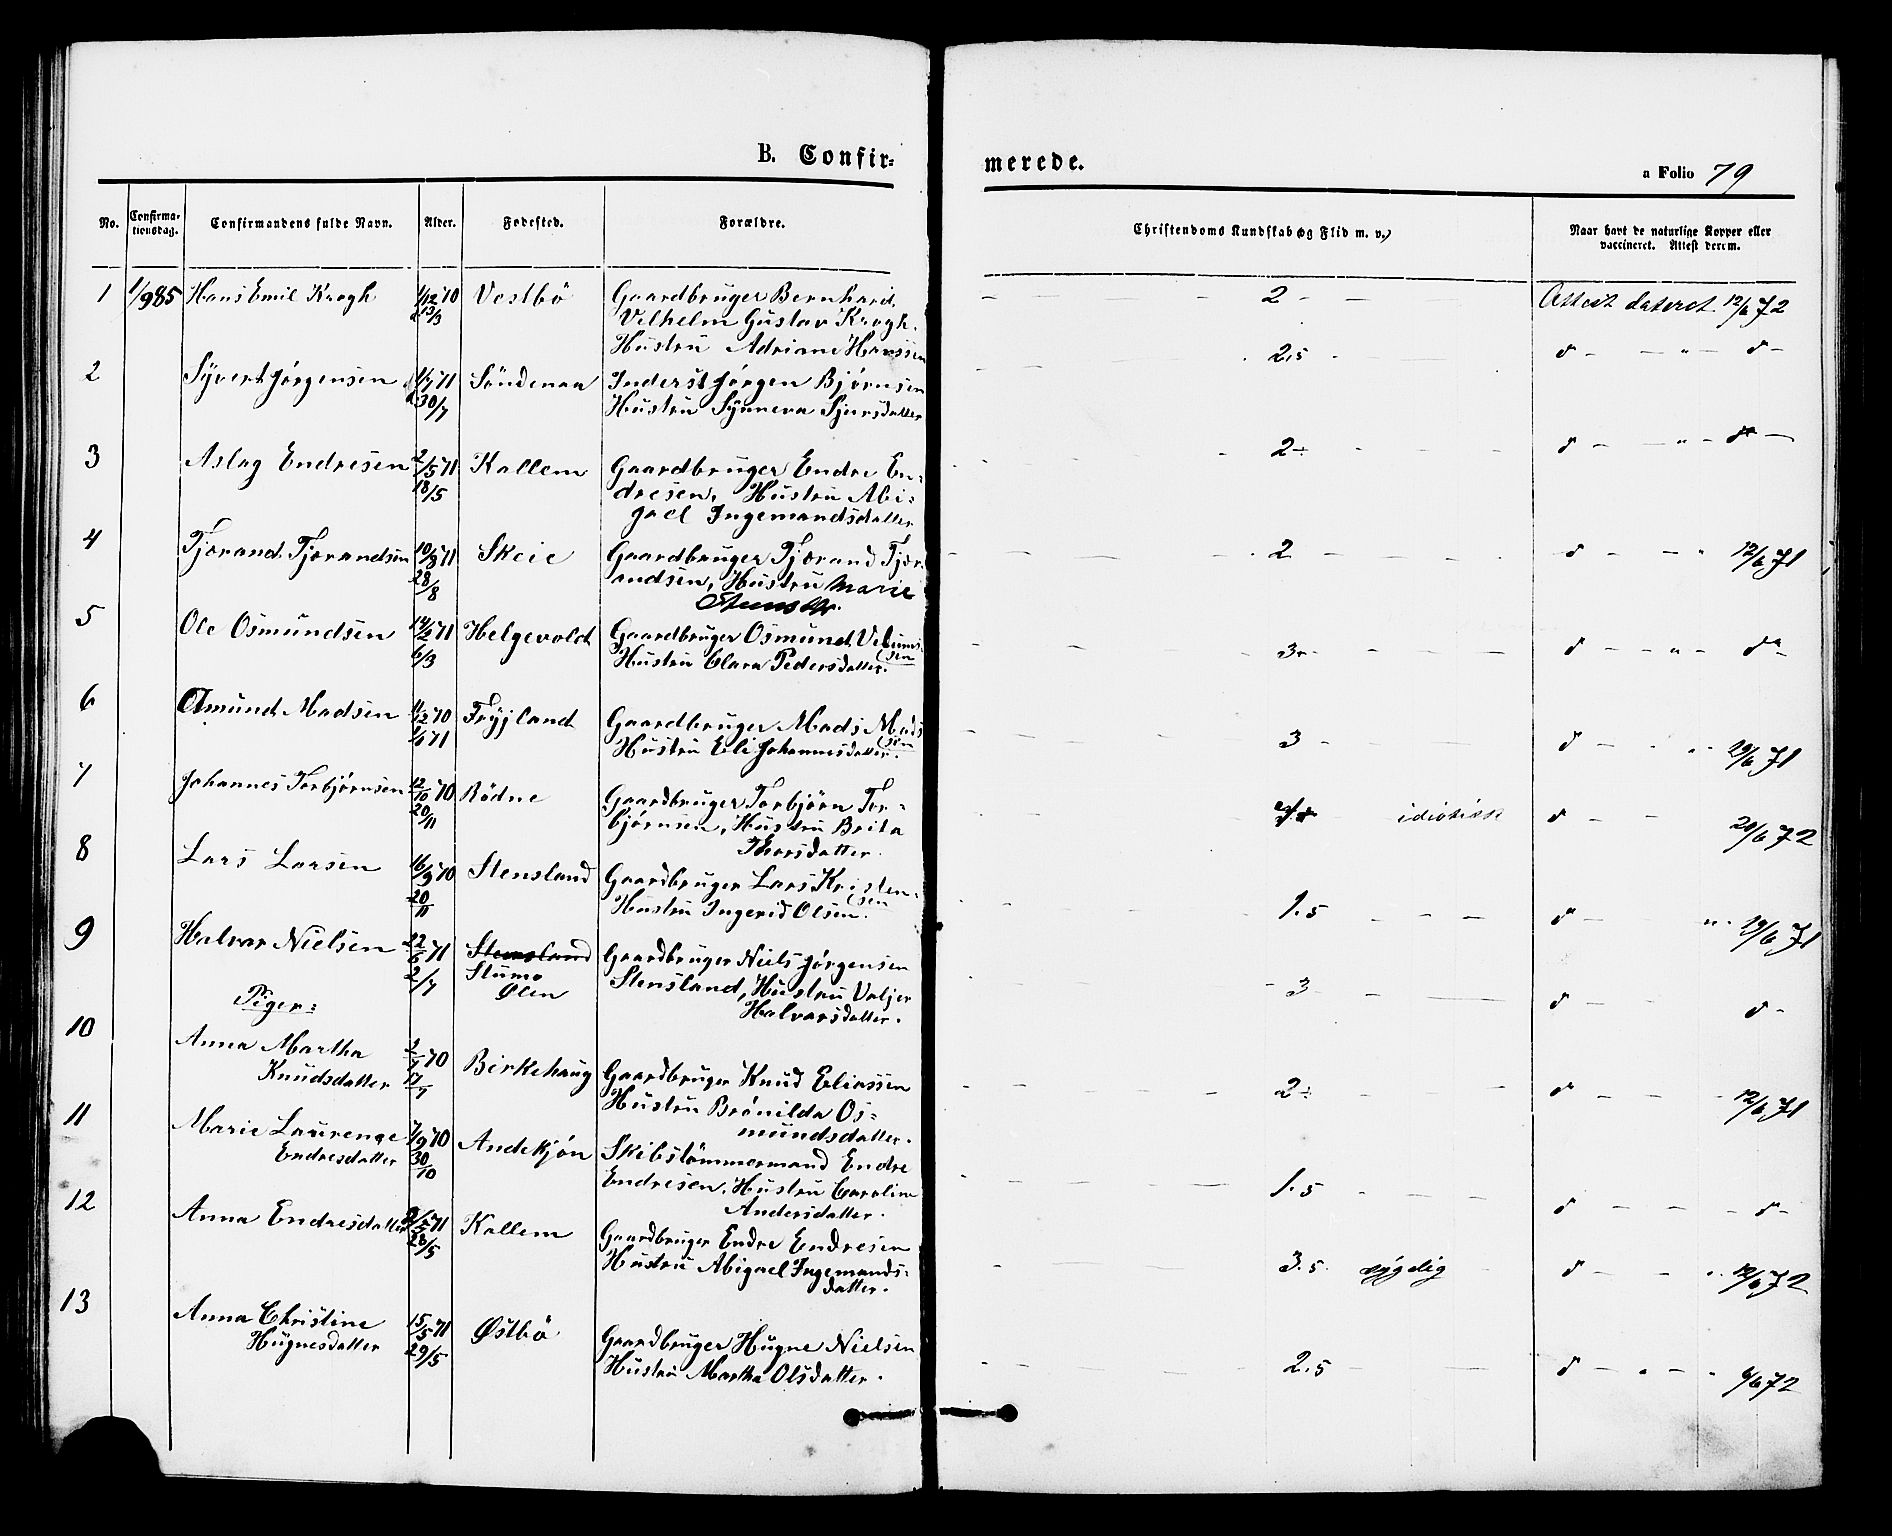 B. Confir-
merede.
a Folio 79
No. Confirma-tionsdag. Confirmandens fulde Navn. Alder. Fødested. Forældre.
Christendoms Kundskab og Flid m. v.) Naar havt de naturlige Kopper eller vaccineret. Attest derom.
1 1/9 85 Hans Emil Krogh 1/12 70 Vestbö Gaardbruger Bernhard
13/3 Vilhelm Gustav Krogh.
Hustru Adriane Hanssen
2 Attest dateret 12/6 72
2 Syvert Jørgensen 1/7 71 Söndenaa Inderst Jørgen Bjørnsen
30/7 Hustru Synneva Sjursdatter
2,5 d - - " - d -
3 Aslag Endresen 2/5 71 Kallem Gaardbruger Endre En-
18/5 dresen, Hustru Abi-
gael Ingemandsdatter
2÷ d - - " - d -
4 Tjorand Tjorandsen 10/8 71 Skeie Gaardbruger Tjorand Tjor
28/8 andsen, Hustru Marie
2 d - - " 12/6 71
5 Ole Osmundsen 14/2 71 Helgevold Gaardbruger Osmund
6/3 Hustru Clara Pedersdatter.
sen
3 d - - " - d -
6 Amund Madsen 11/12 70 Frøjland Gaardbruger Mads Mads
1/1 71 Hustru Eli Johannesdatter.
sen
3 d - 29/6 71
7 Johannes Torbjørnsen 12/10 70 Rödne Gaardbruger Torbjörn Tor-
20/11 bjørnsen, Hustru Brita
Thorsdatter.
idiotisk d - - 20/6 72
8 Lars Larsen 16/9 70 Stensland Gaardbruger Lars Kristen-
20/11 Hustru Ingerid Olsen.
sen
1.5 d - " 29/6 71
9 Halvor Nielsen 22/6 71 Stensland Gaardbruger Niels Jørgensen
2/7 Stumo Stensland, Hustru Valjer
Ølen Halvarsdatter.
3 d - - d -
Piger:
10 Anna Martha 2/7 70 Birkehaug Gaardbruger Knud Eliassen
Knudsdatter 17/7 Hustru Brönilda Os-
mundsdatter.
2÷ d - - - 12/6 71
11 Marie Laurenze 7/9 70 Andekjøn Skibstömmermand Endre
Endresdatter 30/10 Endresen, Hustru Caroline
Andersdatter.
1.5 d - - - d -
12 Anna Endresdatter 71 Kallem Gaardbruger Endre Endresen
28/5 Hustru Abigael Ingemands-
datter.
3.5 sygelig d - - 12/6 72
13 Anna Christine 15/5 71 Østbö Gaardbruger Hugne Nielsen
Hugnesdatter 29/5 Hustru Martha Olsdatter.
2.5 d - - 9/6 72